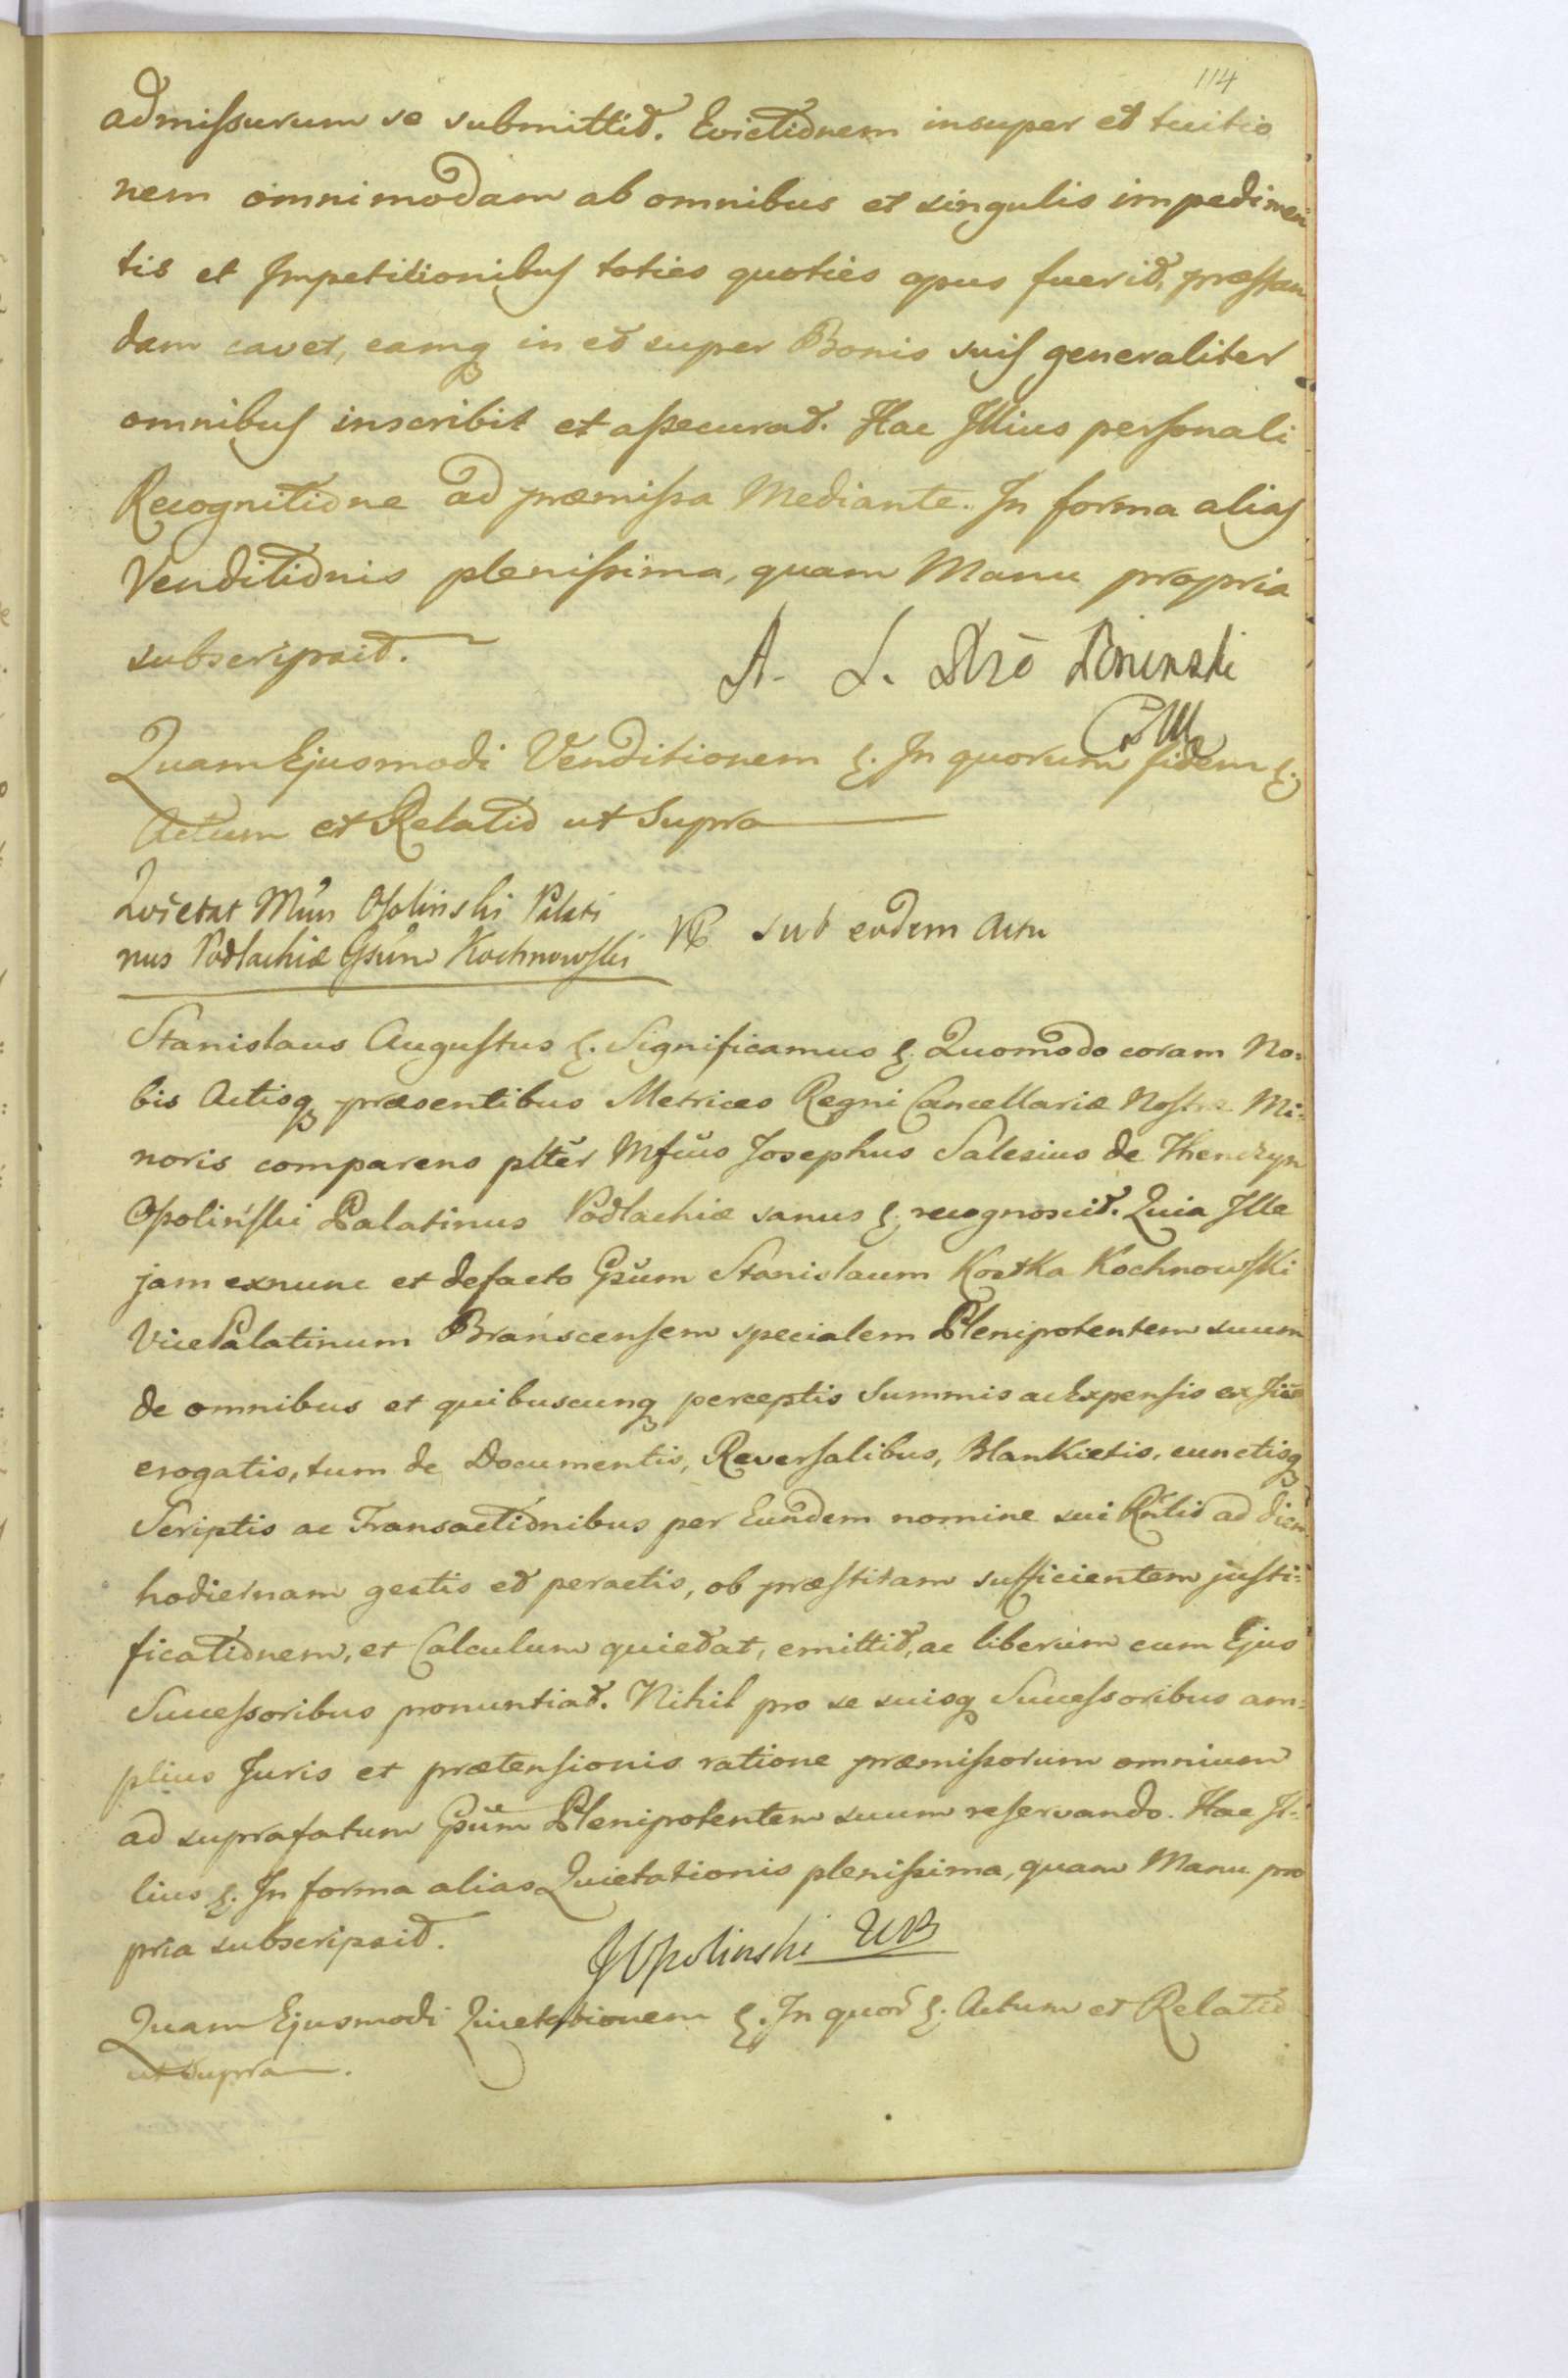 114
admissurum se submittit. Evictionem insuper et tuitio
nem omnimodam ab omnibus et singulis impedimen
tis et Impetitionibus toties quoties opus fuerit, præstan
dam cavet, eamq in et super Bonis suis generaliter
omnibus inscribit et assecurat. Hac Illius personali
Recognitione ad præmissa Mediante. In forma alias
Venditionis plenissima, quam Manu propria
subscripsit.
A. L. Poninski
Quam Ejusmodi Venditionem &. In quorum fidem &.
Actum et Relatio ut Supra
Quietat Mcus Ossolinski Palati
nus Podlachiæ Gsum Kochnowski
sub eodem Actu
Stanislaus Augustus &. Significamus &. Quomodo coram No:
bis Actisq præsentibus Metrices Regni Cancellariæ Nostræ Mi:
noris comparens plter Mfcus Josephus Salesius de Thenczyn
Ossoliński Palatinus Podlachiæ sanus &. recognoscit. Quia Ille
jam exnunc et defacto Gsum Stanislaum Kostka Kochnowski
Vice Palatinum Branscensem specialem Plenipotentem suum
de omnibus et quibuscunq perceptis Summis ac Expensis ex
erogatis, tum de Documentis, Reversalibus, Blankietis, cunctisq
Scriptis ac Transactionibus per Eundem nomine sui Rntis ad diem
hodiernam gestis et peractis, ob præstitam sufficientem justi:
ficationem, et Calculum quietat, emittit, ac liberum cum Ejus
Successoribus pronuntiat. Nihil pro se suisq Successoribus am:
plius Juris et prætensionis ratione præmissorum omnium
ad suprafatum Gsum Plenipotentem suum reservando. Hac Il:
lius &. In forma alias Quietationis plenissima, quam Manu pro
pria subscripsit.
JOssolinski WP
Quam Ejusmodi Quietationem &. In quor &. Actum et Relatio
ut Supra.